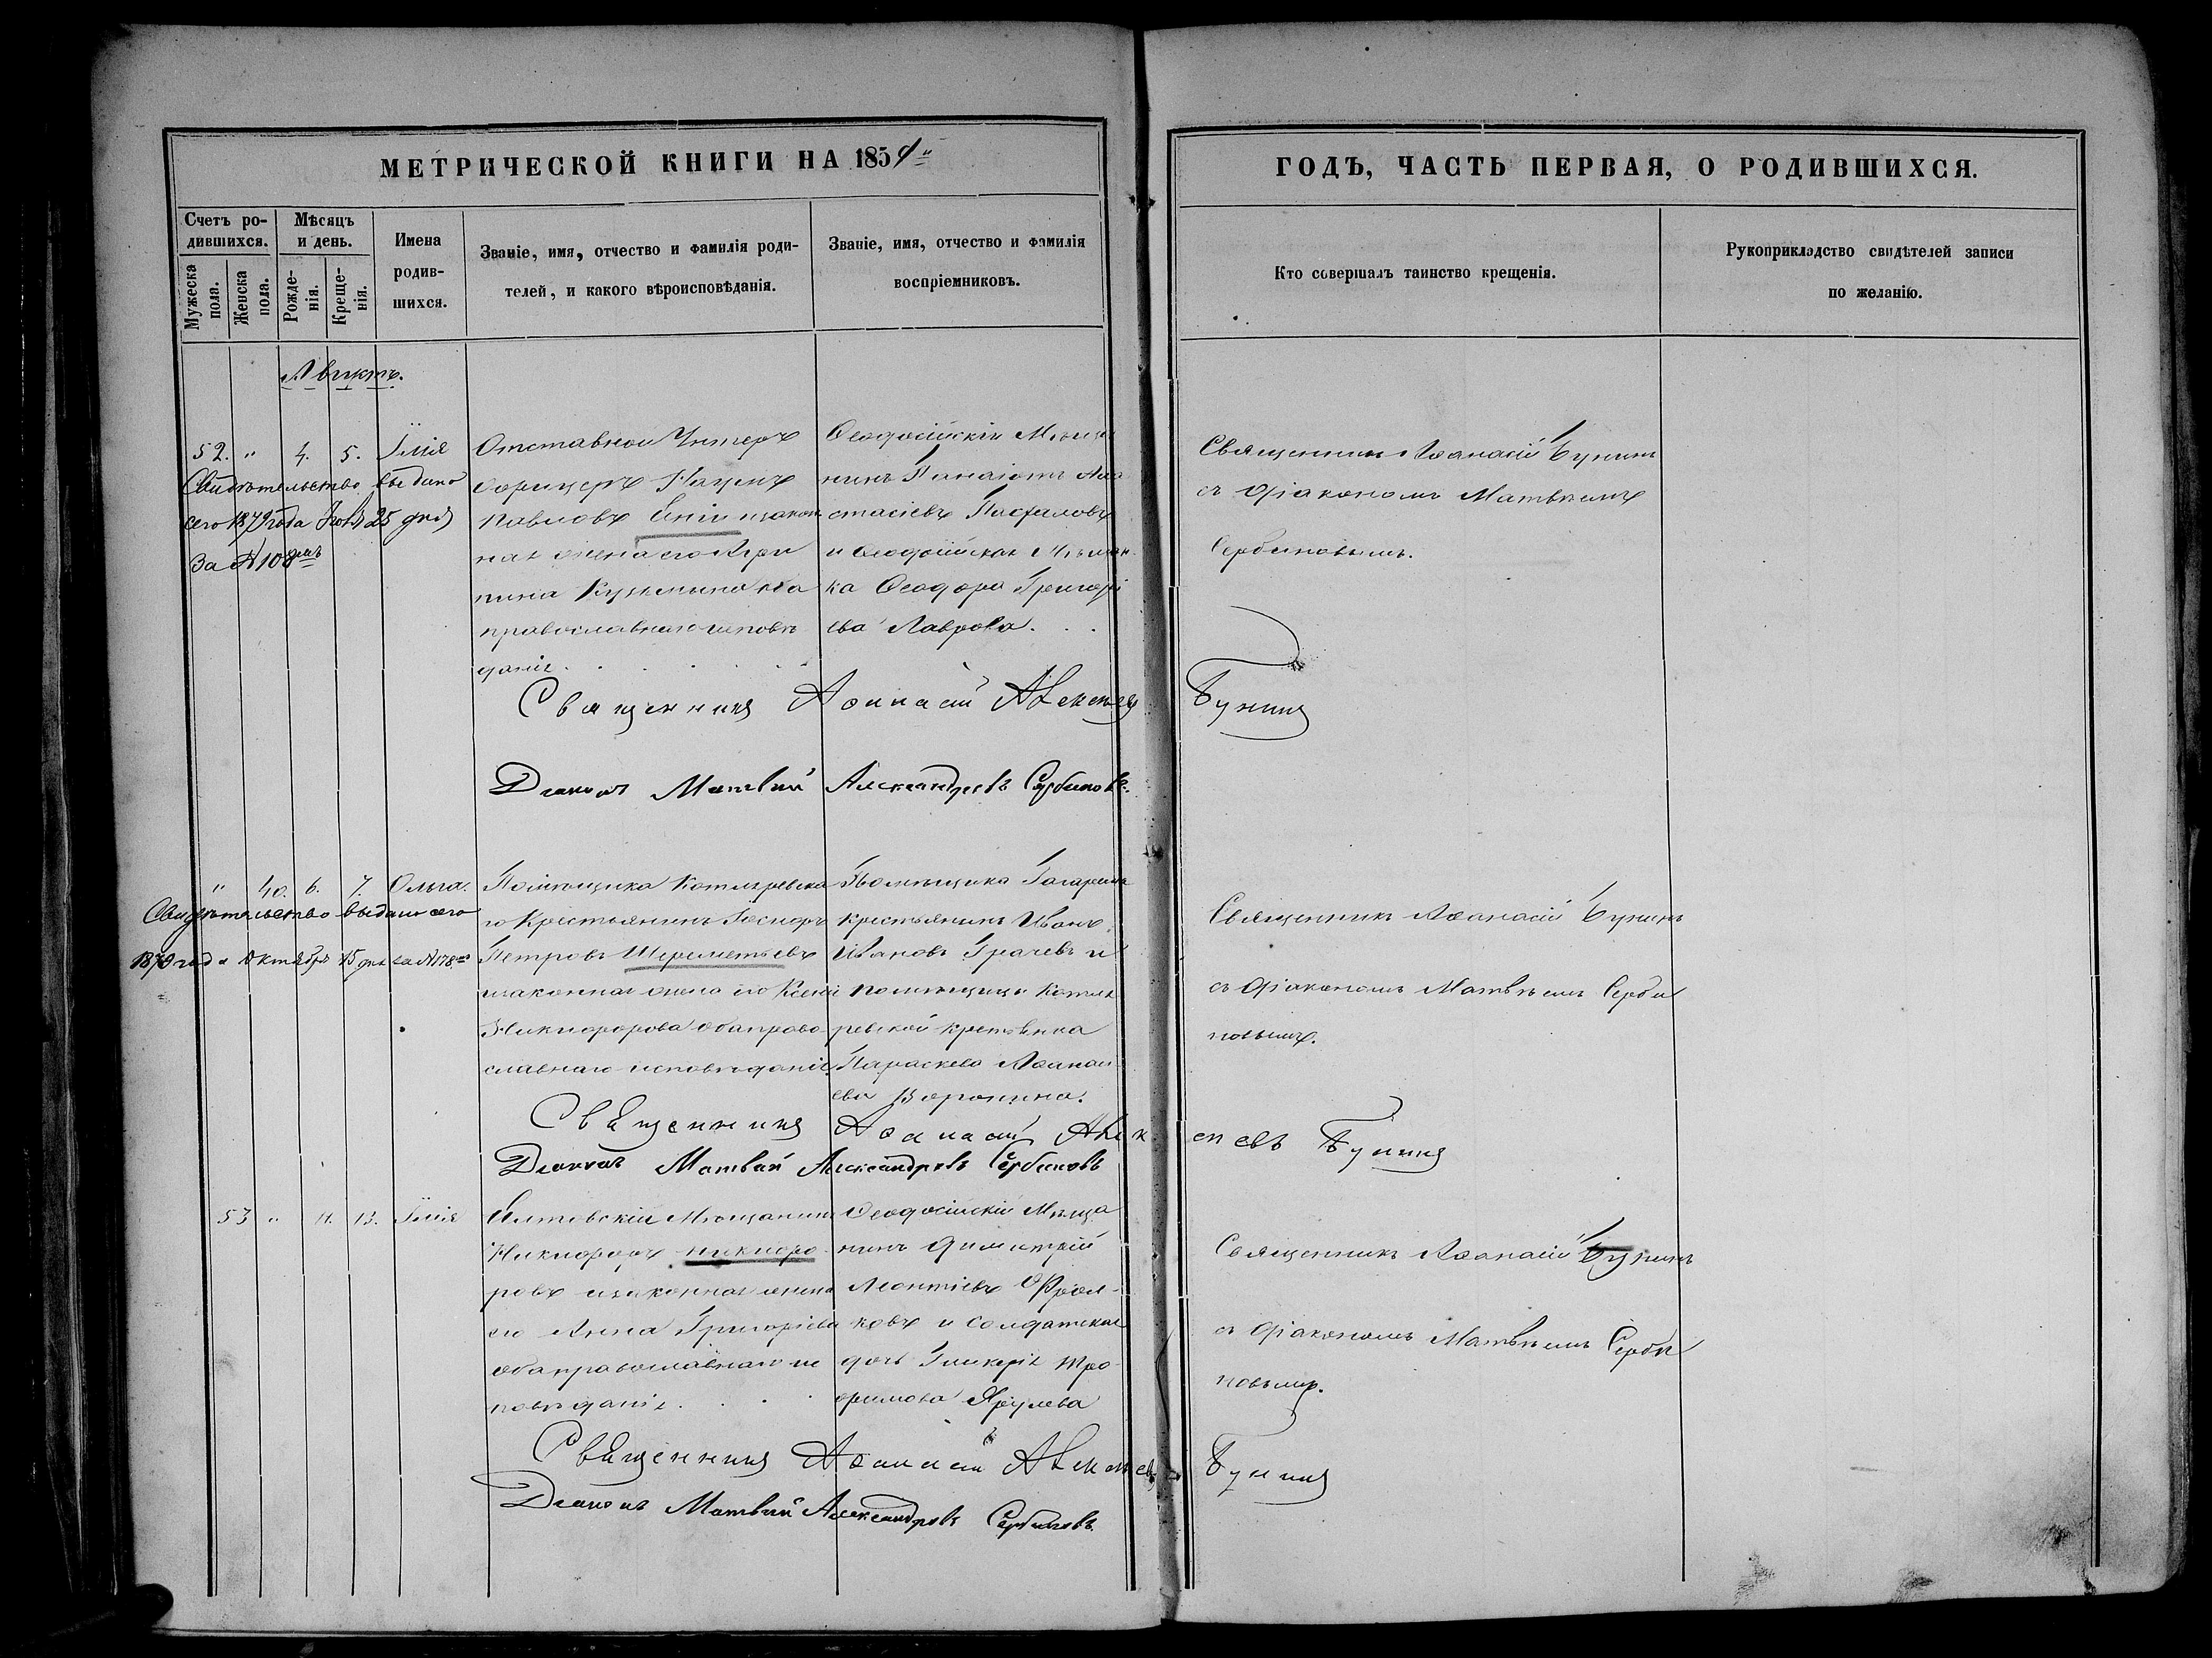 МЕТРИЧЕСКОЙ КНИГИ НА 1854
ГОДЪ, ЧАСТЬ ПЕРВАЯ, О РОДИВШИХСЯ.
Счетъ ро-
дившихся.
Мужеска
пола.
Женска
пола.
Мѣсяцъ
и день.
Рожде-
нія.
Креще-
нія.
Имена
родив-
шихся.
Званіе, имя, отчество и фамилія роди-
телей, и какого вѣроисповѣданія.
Званіе, имя, отчество и фамилія
воспріемниковъ.
Кто совершалъ таинство крещенія.
Рукоприкладство свидѣтелей записи
по желанію.
52. " 4. 5. Илія
Свидѣтельство выдано
сего 1872 года 25 дня
За № 108
Отставной Унтеръ
офицеръ Наумъ
Павловъ закон
ная жена его Агри
пина Кузьмина оба
православнаго исповѣ
данія
Ѳеодосійскій Мѣща
нинъ Панаіотъ Ана
стасіевъ
и Ѳеодосійская Мѣщан
ка Ѳеодора Григорі
ева Лаврова.
Священникъ Аѳанасій Бунинъ
съ діакономъ Матвѣемъ
Сербиновымъ.
Священникъ Аѳанасій Алексѣевъ Бунинъ
Діаконъ Матвѣй Александровъ Сербиновъ.
" 40. 6. 7. Ольга.
Свидѣтельство выдано сего
1870 года Октября 15 дня за № 178
Помѣщика Котляревска
го Крестьянинъ
Петровъ Шереметьевъ
и законная жена его Ксенія
Никифорова оба право
славнаго исповѣданія
Помѣщика Гагарина
крестьянинъ Иванъ
Ивановъ Грачевъ и
помѣщицы Котля
ревской крестьянка
Параскева Аѳанась
ева Воронина.
Священникъ Аѳанасій Бунинъ
съ діакономъ Матвѣемъ Серби
новымъ.
Священникъ Аѳанасій Алексѣевъ Бунинъ
Діаконъ Матвѣй Александровъ Сербиновъ
53 " 11. 13. Илія
Ялтовскій Мѣщанинъ
Никифоръ Никифо
ровъ и законная жена
его Анна Григоріева
оба православнаго ис
повѣданія.
Ѳеодосійскій Мѣща
нинъ Димитрій
Леонтіевъ
ковъ и солдатская
дочь Гликерія Тро
фимова
Священникъ Аѳанасій Бунинъ
съ діакономъ Матвѣемъ Серби
новымъ.
Священникъ Аѳанасій Алексѣевъ Бунинъ
Діаконъ Матвѣй Александровъ Сербиновъ